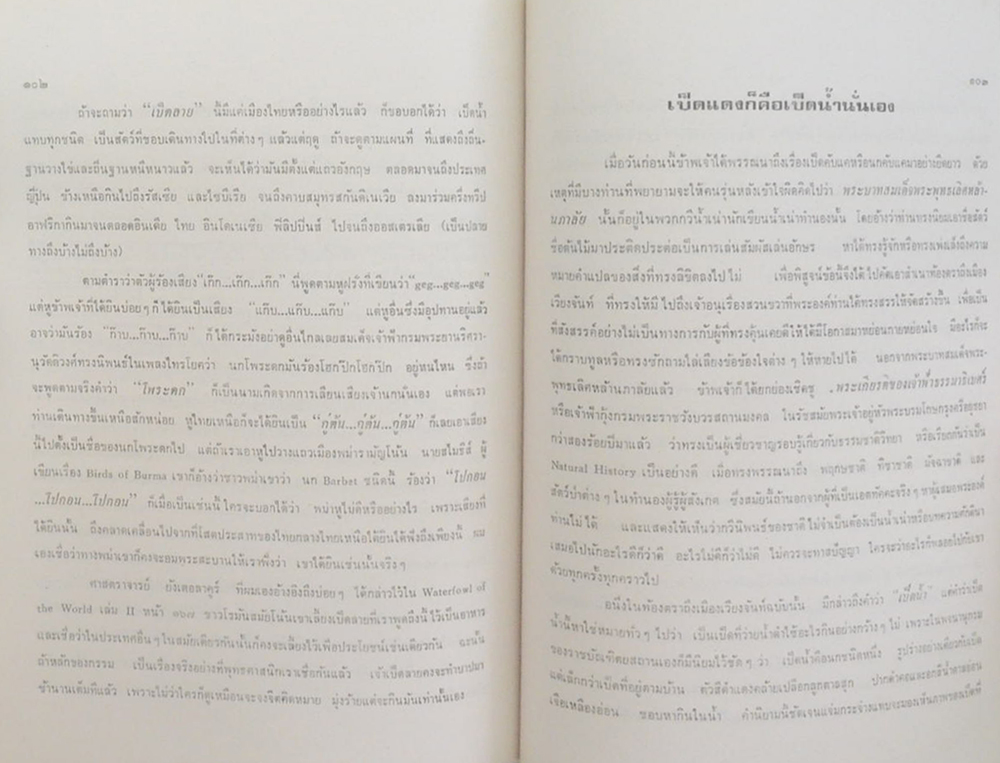 ๑๐๒
ถ้าจะถามว่า "เป็ดลาย" นี้มีแค่เมืองไทยหรืออย่างไรแล้ว ก็ขอบอกได้ว่า เป็ดน้ำ
แทบทุกชนิด เป็นสัตว์ที่ชอบเดินทางไปในที่ต่างๆ แล้วแต่ฤดู ถ้าจะดูตามแผนที่ ที่แสดงถึงถิ่น-
ฐานวางไข่และถิ่นฐานหนีหนาวแล้ว จะเห็นได้ว่ามันมีตั้งแต่แถวอังกฤษ ตลอดมาจนถึงประเทศ
ญี่ปุ่น ข้างเหนือกินไปถึงรัสเซีย และไซบีเรีย จนถึงคาบสมุทรสกันดิเนเวีย ลงมาร่วมครึ่งทวีป
อาฟริกากินมาจนตลอดอินเดีย ไทย อินโดเนเซีย ฟิลิปปินส์ ไปจนถึงออสเตรเลีย (เป็นปลาย
ทางถึงบ้างไม่ถึงบ้าง)
ตามตำราว่าตัวผู้ร้องเสียง "เก๊ก...เก๊ก...เก๊ก" นี่พูดตามหูฝรั่งที่เขียนว่า geg...geg...geg
แต่หูข้าพเจ้าที่ได้ยินบ่อยๆ ก็ได้ยินเป็นเสียง "แก๊บ...แก๊บ...แก๊บ" แต่หูอื่นซึ่งมีอุปทานอยู่แล้ว
อาจว่ามันร้อง "ก๊าบ...ก๊าบ...ก๊าบ" ก็ได้กระมังอย่าดูอื่นไกลเลยสมเด็จเจ้าฟ้ากรมพระยานริศรา-
นุวัดติวงศ์ทรงนิพนธ์ในเพลงไทรโยคว่า นกโพระดกมันร้องโฮกป๊กโฮกป๊ก อยู่หนไหน ซึ่งถ้า
จะพูดตามจริงคำว่า "โพระดก" ก็เป็นนามเกิดจากการเลียนเสียงเจ้านกนั่นเอง แต่พอเรา
ท่านเดินทางขึ้นเหนือสักหน่อย หูไทยเหนือก็จะได้ยินเป็น "กู่ตั้น...กู่ตั้น...กู่ตั้น" ก็เลยเอาเสียง
นี้ไปตั้งเป็นชื่อของนกโพระดกไป แต่ถ้าเราเอาหูไปวางแถวเมืองพม่ารามัญโน้น นายสไมธีส์ ผู้
เขียนเรื่อง Birds of Burma เขาก็อ้างว่าชาวพม่าเขาว่า นก Barbet ชนิดนี้ ร้องว่า "โปกอน
...โปกอน...โปกอน" ก็เมื่อเป็นเช่นนี้ ใครจะบอกได้ว่า หูพม่าไม่ดีหรืออย่างไร เพราะเสียงที่
ได้ยินนั้น ถึงคลาดเคลื่อนไปจากที่โสตประสาทของไทยกลางไทยเหนือได้ยินได้ฟังถึงเพียงนี้ ผม
เองเชื่อว่าทางพม่าเขาก็คงจะอมพระสะบานให้เราฟังว่า เขาได้ยินเช่นนั้นจริงๆ
ศาสตราจารย์ ยังเดอลาคูร์ ที่ผมเองอ้างอิงถึงบ่อยๆ ได้กล่าวไว้ใน Waterfowl of
the World เล่ม II หน้า ๑๖๗ ชาวโรมันสมัยโน้นเขาเลี้ยงเป็ดลายที่เราพูดถึงนี้ไว้เป็นอาหาร
และเชื่อว่าในประเทศอื่นๆ ในสมัยเดียวกันนั้นก็คงจะเลี้ยงไว้เพื่อประโยชน์เช่นเดียวกัน ฉะนั้น
ถ้าหลักของกรรม เป็นเรื่องจริงอย่างที่พุทธศาสนิกเราเชื่อกันแล้ว เจ้าเป็ดลายคงจะทำบาปมา
ช้านานเต็มทีแล้ว เพราะไม่ว่าใครก็ดูเหมือนจะจงจิตคิดหมาย มุ่งร้ายแต่จะกินมันเท่านั้นเอง
๑๐๓
เป็ดแดงก็คือเป็ดน้ำนั่นเอง
เมื่อวันก่อนนี้ข้าพเจ้าได้พรรณนาถึงเรื่องเป็ดคับแคหรือนกคับแคมาอย่างยืดยาว ด้วย
เหตุที่มีบางท่านที่พยายามจะให้คนรุ่นหลังเข้าใจผิดคิดไปว่า พระบาทสมเด็จพระพุทธเลิศหล้า-
นภาลัย นั้นก็อยู่ในพวกกวีน้ำเน่านักเขียนน้ำเน่าทำนองนั้น โดยอ้างว่าท่านทรงนิยมเอาชื่อสัตว์
ชื่อต้นไม้มาประดิดประต่อเป็นการเล่นสัมผัสเล่นอักษร หาได้ทรงรู้จักหรือทรงเพ่งเล็งถึงความ
หมายคำแปลของสิ่งที่ทรงลิขิตลงไปไม่ เพื่อพิสูจน์ข้อนี้จึงได้ไปคัดเอาสำเนาท้องตราถึงเมือง
เวียงจันท์ ที่ทรงให้มีไปถึงเจ้าอนุเรื่องสวนขวาที่พระองค์ท่านได้ทรงสรรให้จัดสร้างขึ้น เพื่อเป็น
ที่สังสรรค์อย่างไม่เป็นทางการกับผู้ที่ทรงคุ้นเคยดีให้ได้มีโอกาสมาหย่อนกายหย่อนใจ มีอะไรก็จะ
ได้กราบทูลหรือทรงซักถามไล่เลียงข้อข้องใจต่างๆ ให้หายไปได้ นอกจากพระบาทสมเด็จพระ-
พุทธเลิศหล้านภาลัยแล้ว ข้าพเจ้าก็ได้ยกย่องเชิดชู พระเกียรติของเจ้าฟ้าธรรมาธิเบศร์
หรือเจ้าฟ้ากุ้งกรมพระราชวังบวรสถานมงคล ในรัชสมัยพระเจ้าอยู่หัวพระบรมโกษกรุงศรีอยุธยา
กว่าสองร้อยปีมาแล้ว ว่าทรงเป็นผู้เชี่ยวชาญรอบรู้เกี่ยวกับธรรมชาติวิทยา หรือเรียกกันว่าเป็น
Natural History เป็นอย่างดี เมื่อทรงพรรณนาถึง พฤกษชาติ ทิชาชาติ มัจฉาชาติ และ
สัตว์ป่าต่างๆ ในทำนองผู้รู้ผู้สังเกต ซึ่งสมัยนี้ถ้านอกจากผู้ที่เป็นเอตทัคคะจริงๆ หาผู้เสมอพระองค์
ท่านไม่ได้ และแสดงให้เห็นว่ากวีนิพนธ์ของชาติไม่จำเป็นต้องเป็นน้ำเน่าหรือบทความศักดินา
เสมอไปนักอะไรดีก็ว่าดี อะไรไม่ดีก็ว่าไม่ดี ไม่ควรจะทาสปัญญา ใครจะว่าอะไรก็พลอยไปกับเขา
ด้วยทุกครั้งทุกคราวไป
อนึ่งในท้องตราถึงเมืองเวียงจันท์ฉบับนั้น มีกล่าวถึงคำว่า "เป็ดน้ำ" แต่คำว่าเป็ด
น้ำนี้หาใช่หมายทั่วๆ ไปว่า เป็นเป็ดที่ว่ายน้ำดำใช้อะไรกินอย่างกว้างๆ ไม่ เพราะในพจนานุกรม
ของราชบัณฑิตยสถานเองก็มีนิยมไว้ชัดๆ ว่า เป็ดน้ำคือนกชนิดหนึ่ง รูปร่างอย่างเดียวกับเป็ด
แต่เล็กกว่าเป็ดที่อยู่ตามบ้าน ตัวสีดำแดงคล้ายเปลือกลูกตาลสุก ปากดำคอและอกสีน้ำตาลอ่อน
เจือเหลืองอ่อน ชอบหากินในน้ำ คำนิยามนี้ชัดเจนแจ่มกระจ่างแทบจะมองเห็นภาพของเป็ดที่